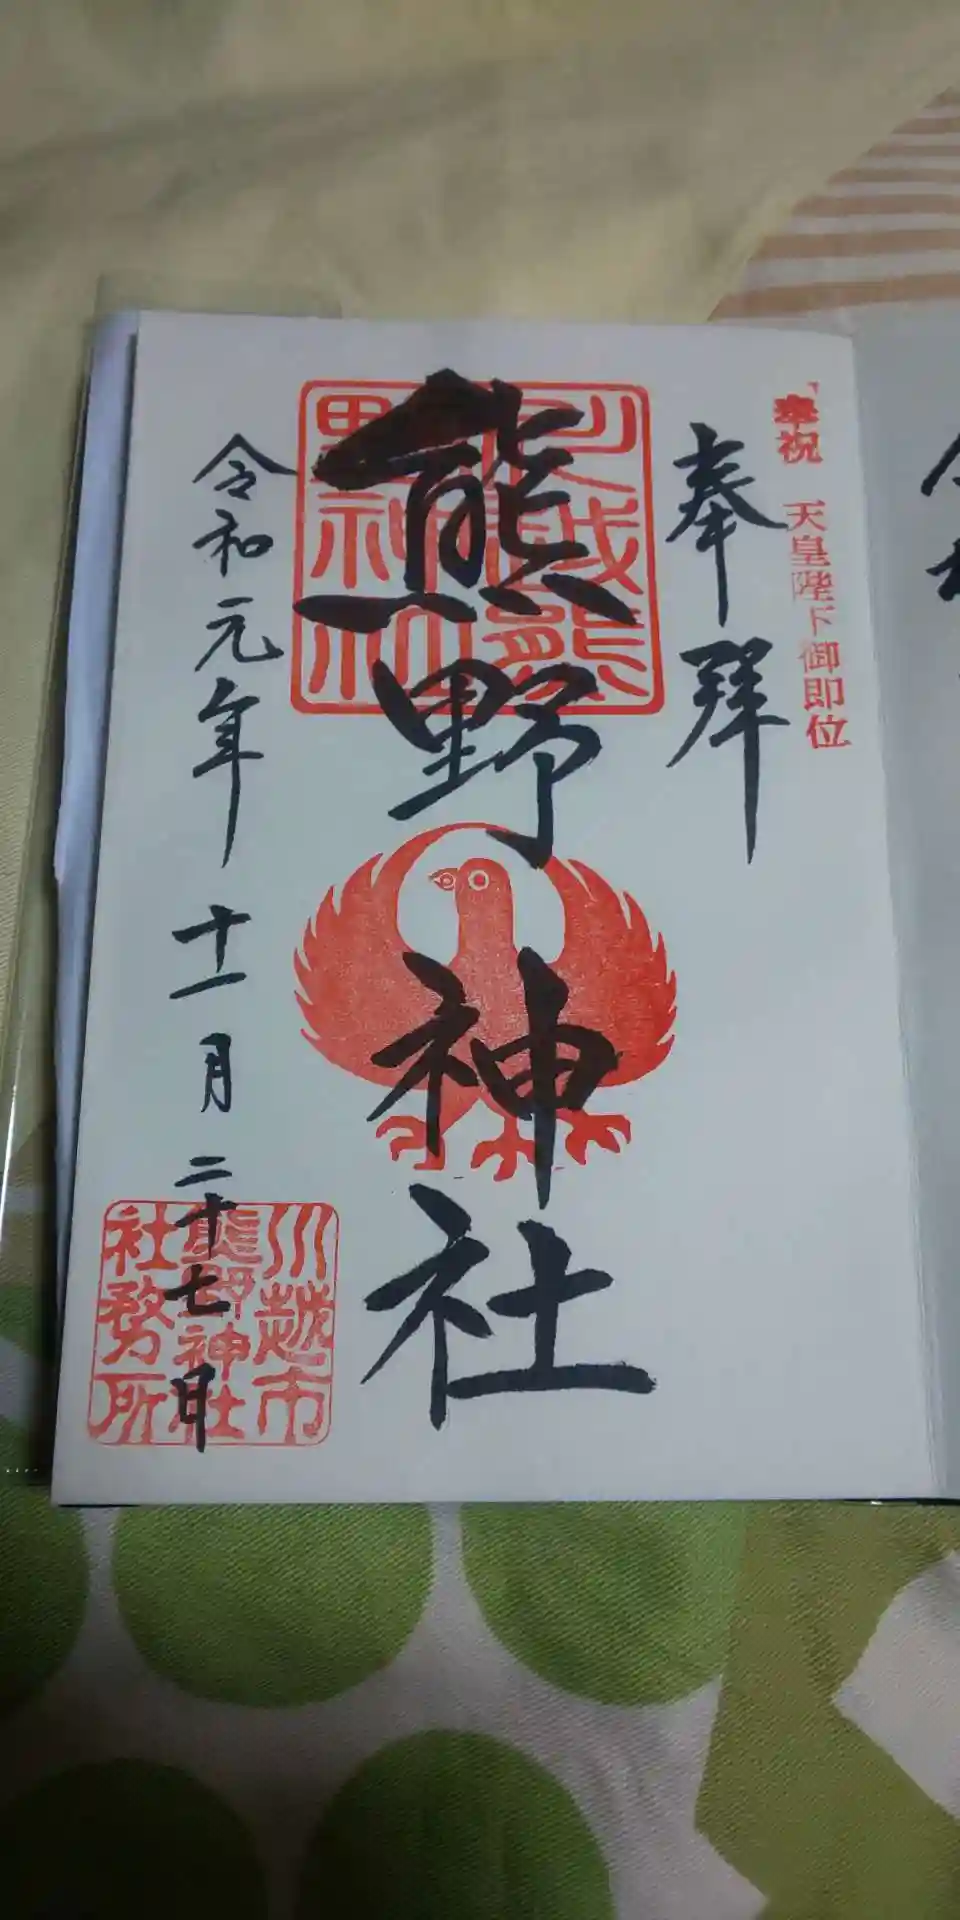 奉祝 天皇陛下御即位
奉拝
川越熊
野神社
熊野神社
令和元年十一月二十七日
川越市
熊野神社
社務所